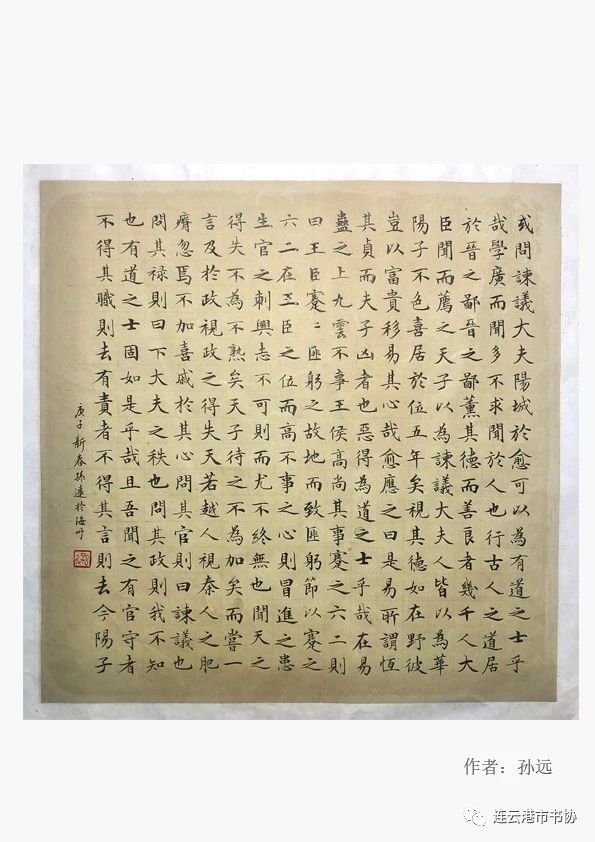 或問諫議大夫陽城於愈可以為有道之士乎
哉學廣而聞多不求聞於人也行古人之道居
於晉之鄙晉之鄙薰其德而善良者幾千人大
臣聞而薦之天子以為諫議大夫人皆以為華
陽子不色喜居於位五年矣視其德如在野彼
豈以富貴移易其心哉愈應之曰是易所謂恆
其貞而夫子凶者也惡得為道之士乎哉在易
蠱之上九雲不事王侯高尚其事蹇之六二則
曰王臣蹇〻匪躬之故地而致匪躬節以蹇之
六二在王臣之位而高不事之心則冒進之患
生官之刺興志不可則而尤不終無也聞天之
得失不為不熟矣天子待之不為加矣而嘗一
言及於政視政之得失天若越人視秦人之肥
瘠忽焉不加喜戚於其心問其官則曰諫議也
問其祿則曰下大夫之秩也問其政則我不知
也有道之士固如是乎哉且吾聞之有官守者
不得其職則去有責者不得其言則去今陽子
庚子新春孫遠於海州
作者：孙远
连云港市书协